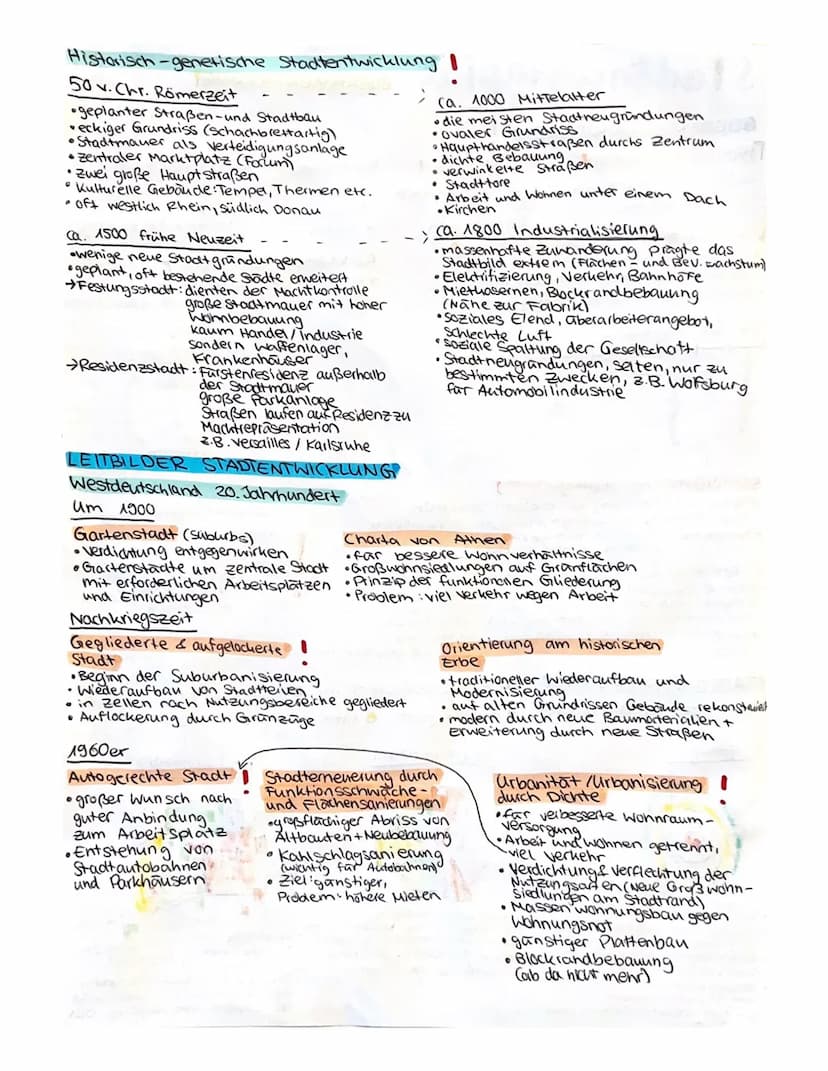 Historisch-genetische Stadtentwicklung !
50 v. Chr. Römerzeit
• geplanter Straßen- und Stadtbau
• eckiger Grundriss (Schachbrettartig)
• Stadtmauer als Verteidigungsanlage
• zentraler Marktplatz (Forum)
• zwei große Hauptstraßen
• kulturelle Gebäude: Tempel, Thermen etc.
• oft westlich Rhein, südlich Donau
ca. 1000 Mittelalter
• die meisten Stadtneugründungen
• ovaler Grundriss
• Haupthandelsstraßen durchs Zentrum
• dichte Bebauung
• verwinkelte Straßen
• Stadttore
• Arbeit und Wohnen unter einem Dach
• Kirchen
ca. 1500 frühe Neuzeit
• wenige neue Stadtgründungen
• geplant, oft bestehende Städte erweitert
→ Festungsstadt: dienten der Machtkontrolle
große Stadtmauer mit hoher
Wohnbebauung
kaum Handel/Industrie
sondern Waffenlager,
Krankenhäuser
→ Residenzstadt: Fürstenresidenz außerhalb
der Stadtmauer
große Parkanlage
Straßen laufen auf Residenz zu
Machtrepräsentation
z.B. Versailles / Karlsruhe
ca. 1800 Industrialisierung
• massenhafte Zuwanderung prägte das
Stadtbild extrem (Flächen- und Bev. wachstum)
• Elektrifizierung, Verkehr, Bahnhöfe
• Mietkasernen, Blockrandbebauung
(Nähe zur Fabrik)
• Soziales Elend, Überarbeiterangebot,
schlechte Luft
• soziale Spaltung der Gesellschaft
• Stadtneugründungen, selten, nur zu
bestimmten Zwecken, z.B. Wolfsburg
für Automobilindustrie
LEITBILDER STADTENTWICKLUNG
Westdeutschland 20. Jahrhundert
Um 1900
Gartenstadt (Suburbs)
• Verdichtung entgegenwirken
• Gartenstädte um zentrale Stadt
mit erforderlichen Arbeitsplätzen
und Einrichtungen
Charta von Athen
• für bessere Wohnverhältnisse
• Großwohnsiedlungen auf Grünflächen
• Prinzip der funktionalen Gliederung
• Problem: viel Verkehr wegen Arbeit
Nachkriegszeit
Gegliederte & aufgelockerte !
Stadt
• Beginn der Suburbanisierung
• Wiederaufbau von Stadtteilen
• in Zellen nach Nutzungsbereiche gegliedert
• Auflockerung durch Grünzüge
Orientierung am historischen
Erbe
• traditioneller Wiederaufbau und
Modernisierung
• auf alten Grundrissen Gebäude rekonstruiert
• modern durch neue Baumaterialien +
Erweiterung durch neue Straßen
1960er
Autogerechte Stadt !
• großer Wunsch nach
guter Anbindung
zum Arbeitsplatz
• Entstehung von
Stadtautobahnen
und Parkhäusern
Stadterneuerung durch
Funktionsschwäche-
und Flächensanierungen
• großflächiger Abriss von
Altbauten + Neubebauung
• Kahlschlagsanierung
(wichtig für Autobahnen)
• Ziel: günstiger,
Problem: höhere Mieten
Urbanität / Urbanisierung !
durch Dichte
• für verbesserte Wohnraum-
versorgung
• Arbeit und Wohnen getrennt,
viel Verkehr
• Verdichtung & Verflechtung der
Nutzungsarten (Neue Großwohn-
siedlungen am Stadtrand)
• Massenwohnungsbau gegen
Wohnungsnot
• günstiger Plattenbau
• Blockrandbebauung
(ab da nicht mehr)